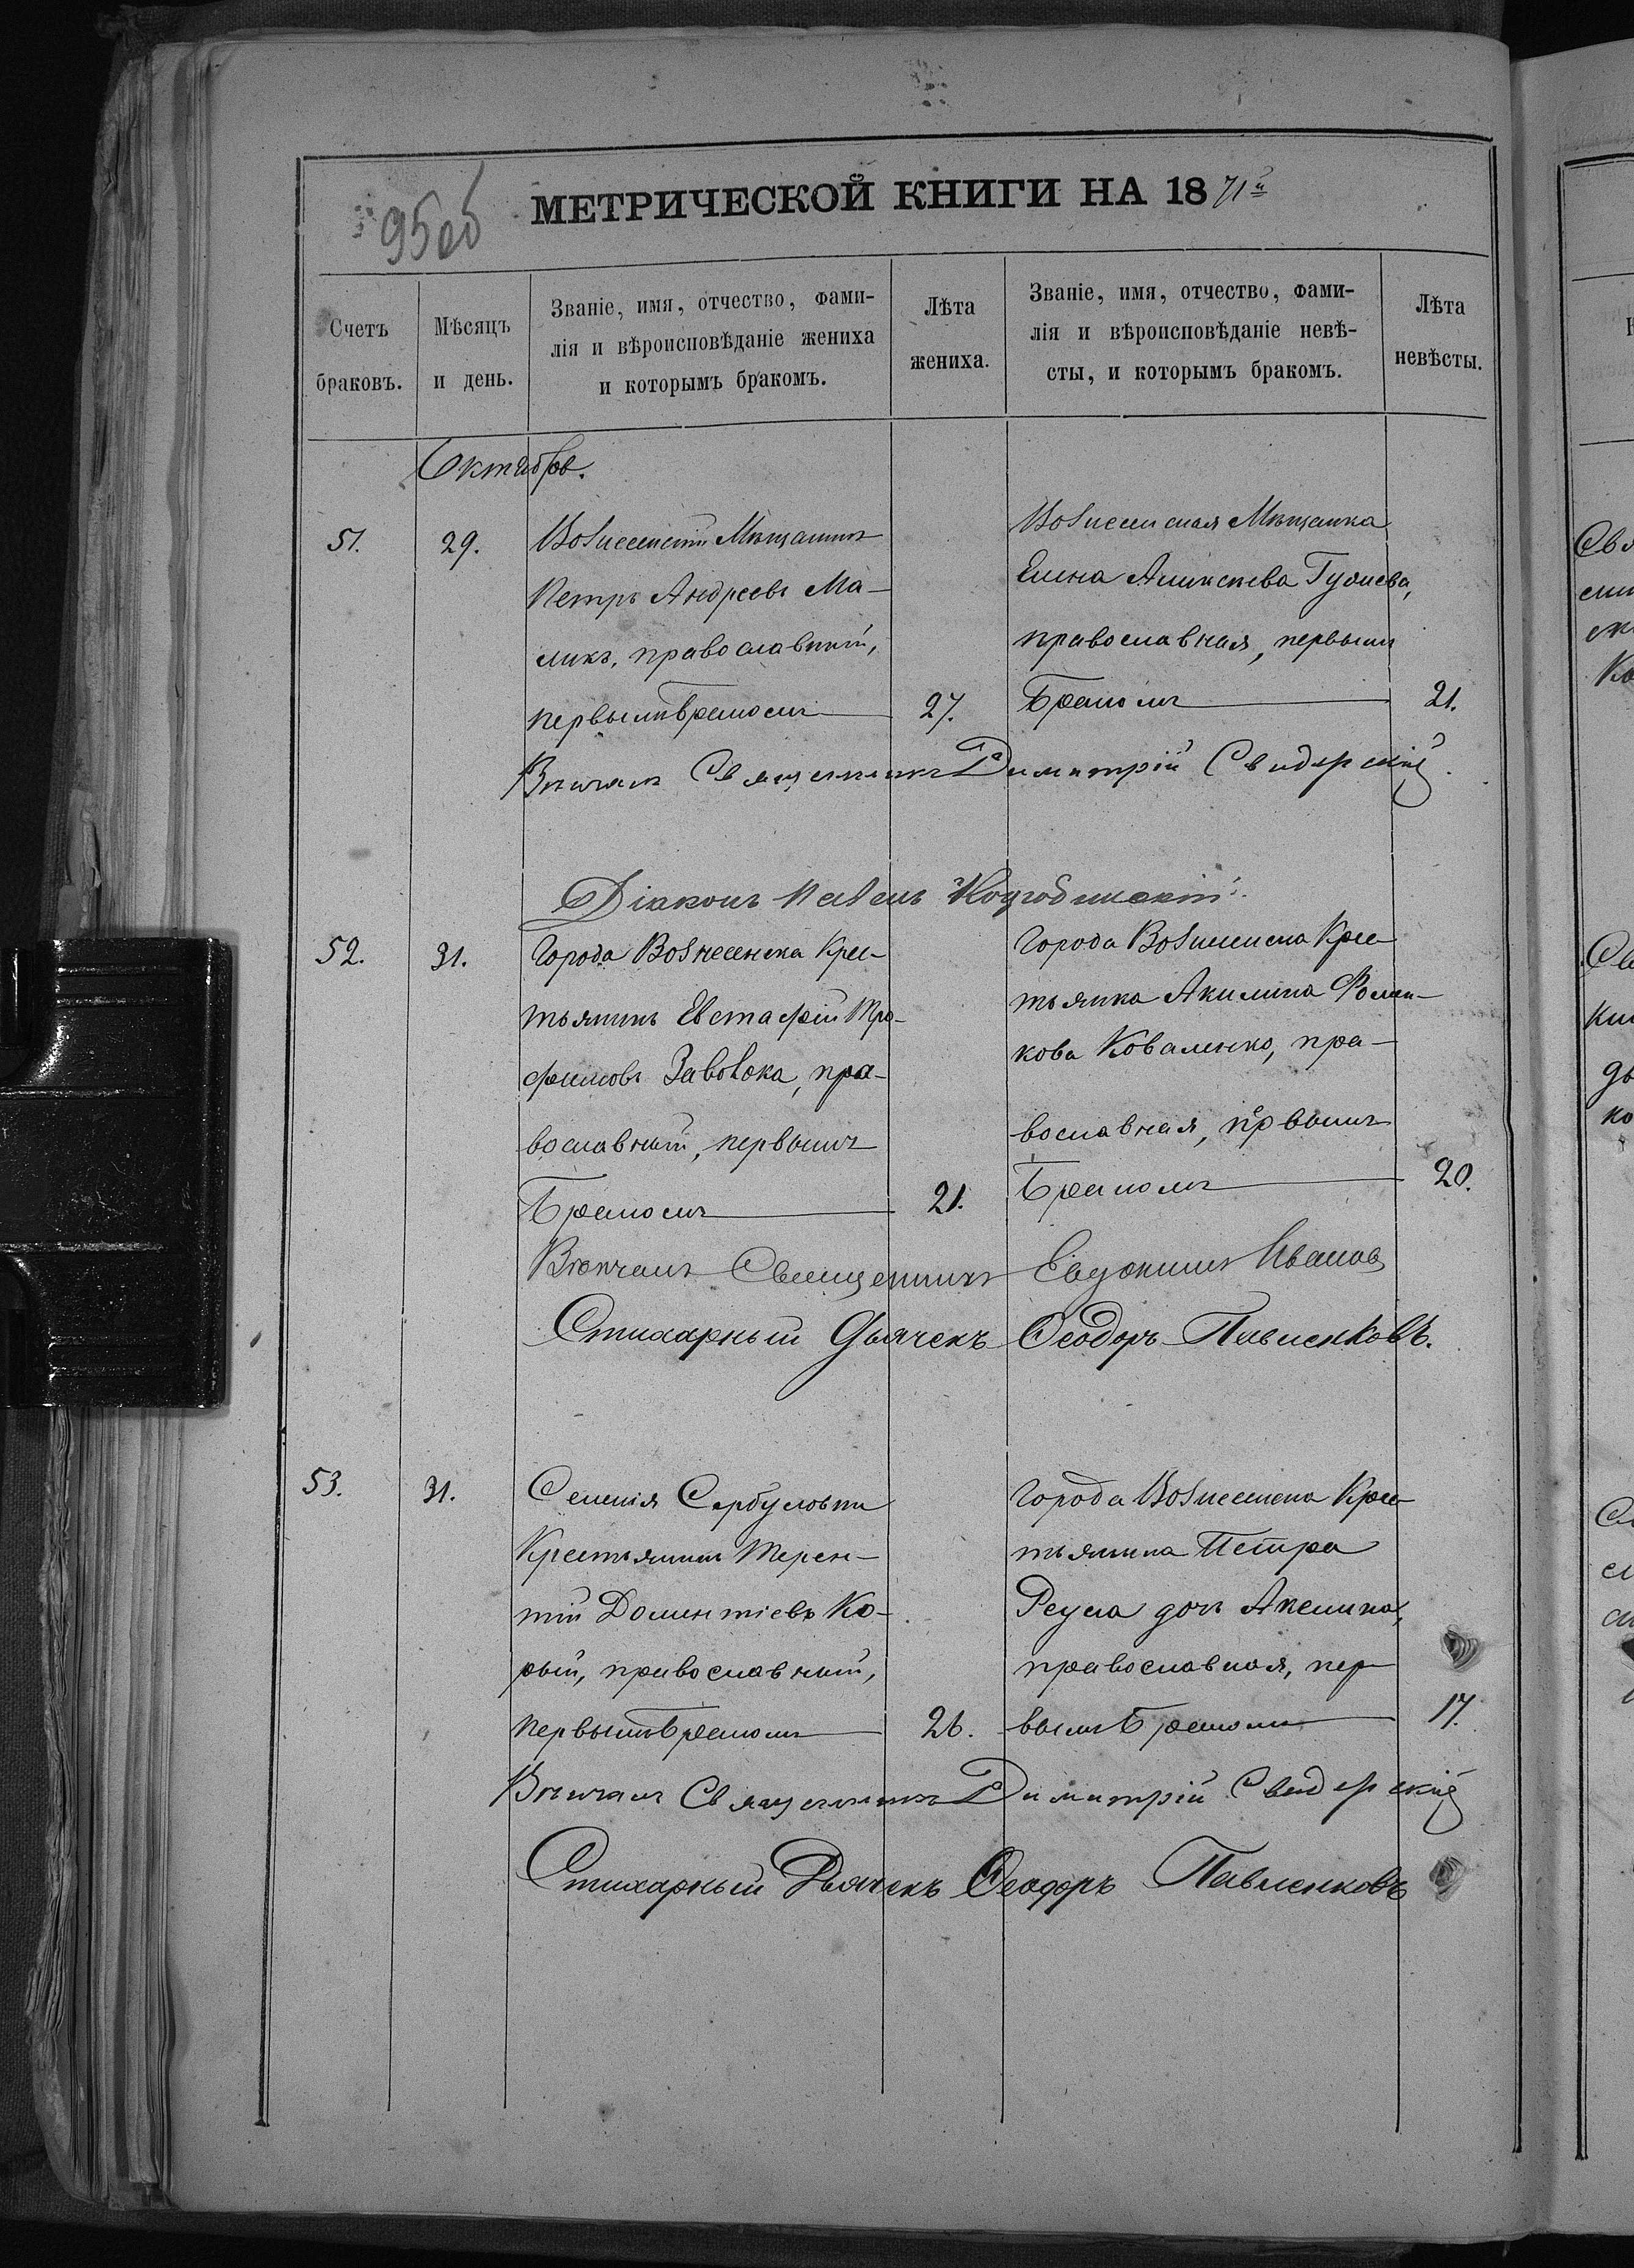 95об
МЕТРИЧЕСКОЙ КНИГИ НА 1871й
Счетъ браковъ.
Мѣсяцъ и день.
Званіе, имя, отчество, фами-
лія и вѣроисповѣданіе жениха
и которымъ бракомъ.
Лѣта
жениха.
Званіе, имя, отчество, фами-
лія и вѣроисповѣданіе невѣ-
сты, и которымъ бракомъ.
Лѣта
невѣсты.
Октябрь.
51.
29.
Вознесенскій Мѣщанинъ
Петръ Андреевъ Ма-
ликъ, православный,
первымъ бракомъ
27.
Вознесенская Мѣщанка
Елена Алексѣева
православная, первымъ
бракомъ
21.
Вѣнчалъ Священникъ Димитрій Свидерскій.
Діаконъ Павелъ
52.
31.
Города Вознесенска Крес-
тьянинъ Евстафій Тро-
фимовъ Заволока, пра-
вославный, первымъ
бракомъ
21.
Города Вознесенска Крес-
тьянка Акилина Фомен-
кова Коваленко, пра-
вославная, первымъ
бракомъ
20.
Вѣнчалъ Священникъ Евдокимъ Иванов
Стихарный Дьячекъ Ѳеодоръ Павленковъ.
53.
31.
Селенія Сербуловки
Крестьянинъ Терен-
тій Доментіевъ Ко-
рый, православный,
первымъ бракомъ
26.
Города Вознесенска Крес-
тьянина Петра
Реуса дочь Акилина,
православная, пер-
вымъ бракомъ
17.
Вѣнчалъ Священникъ Димитрій Свидерскій
Стихарный Дьячекъ Ѳеодоръ Павленковъ